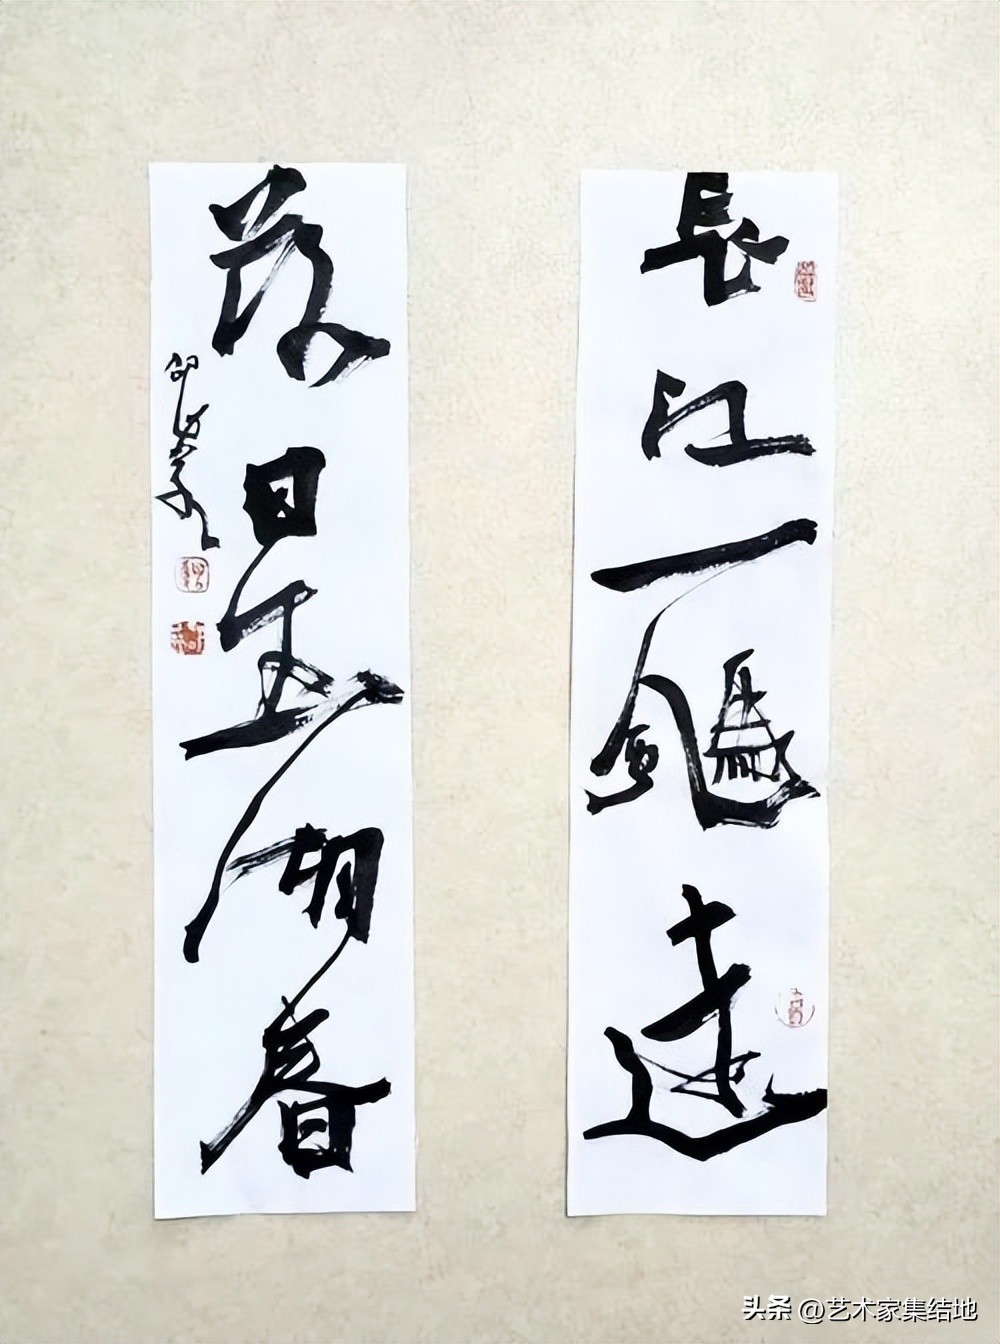 長江一颿遠
落日五湖春
头条 @艺术家集结地